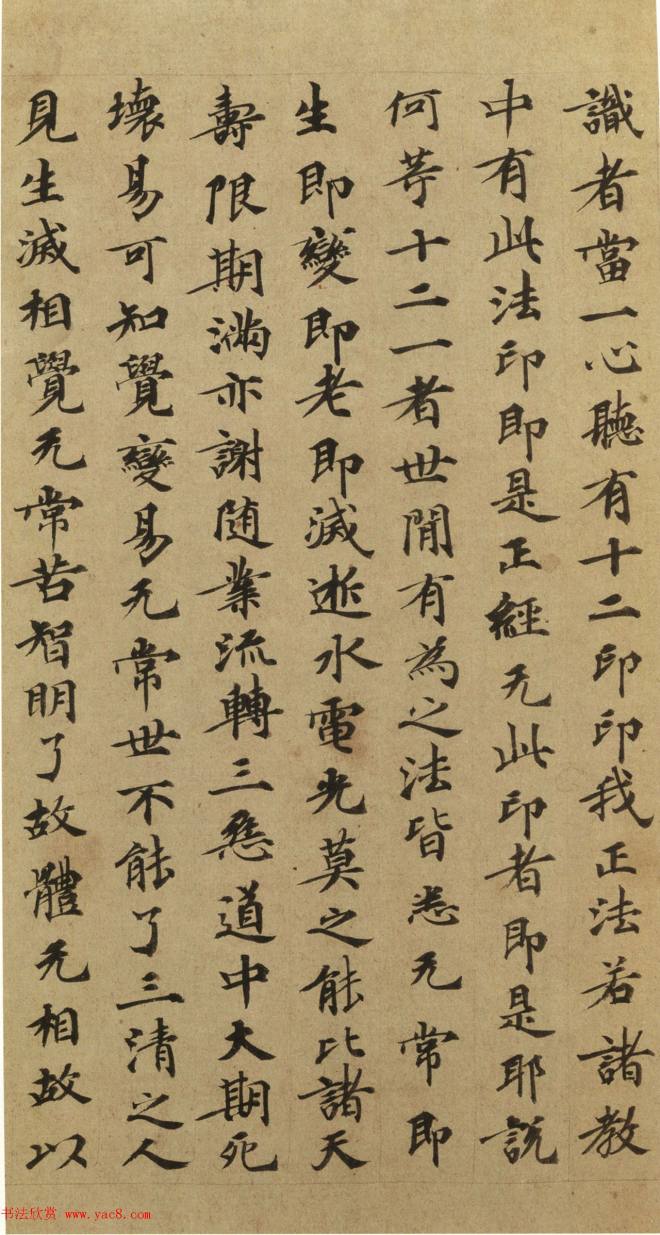 識者當一心聽有十二印印我正法若諸教
中有此法印即是正經无此印者即是耶說
何等十二一者世間有為之法皆悉无常即
生即變即老即滅逝水電光莫之能比諸天
壽限期滿亦謝随業流轉三惡道中大期死
壞易可知覺變易无常世不能了三清之人
見生滅相覺无常苦智明了故體无相故以
书法欣赏 www.yac8.com